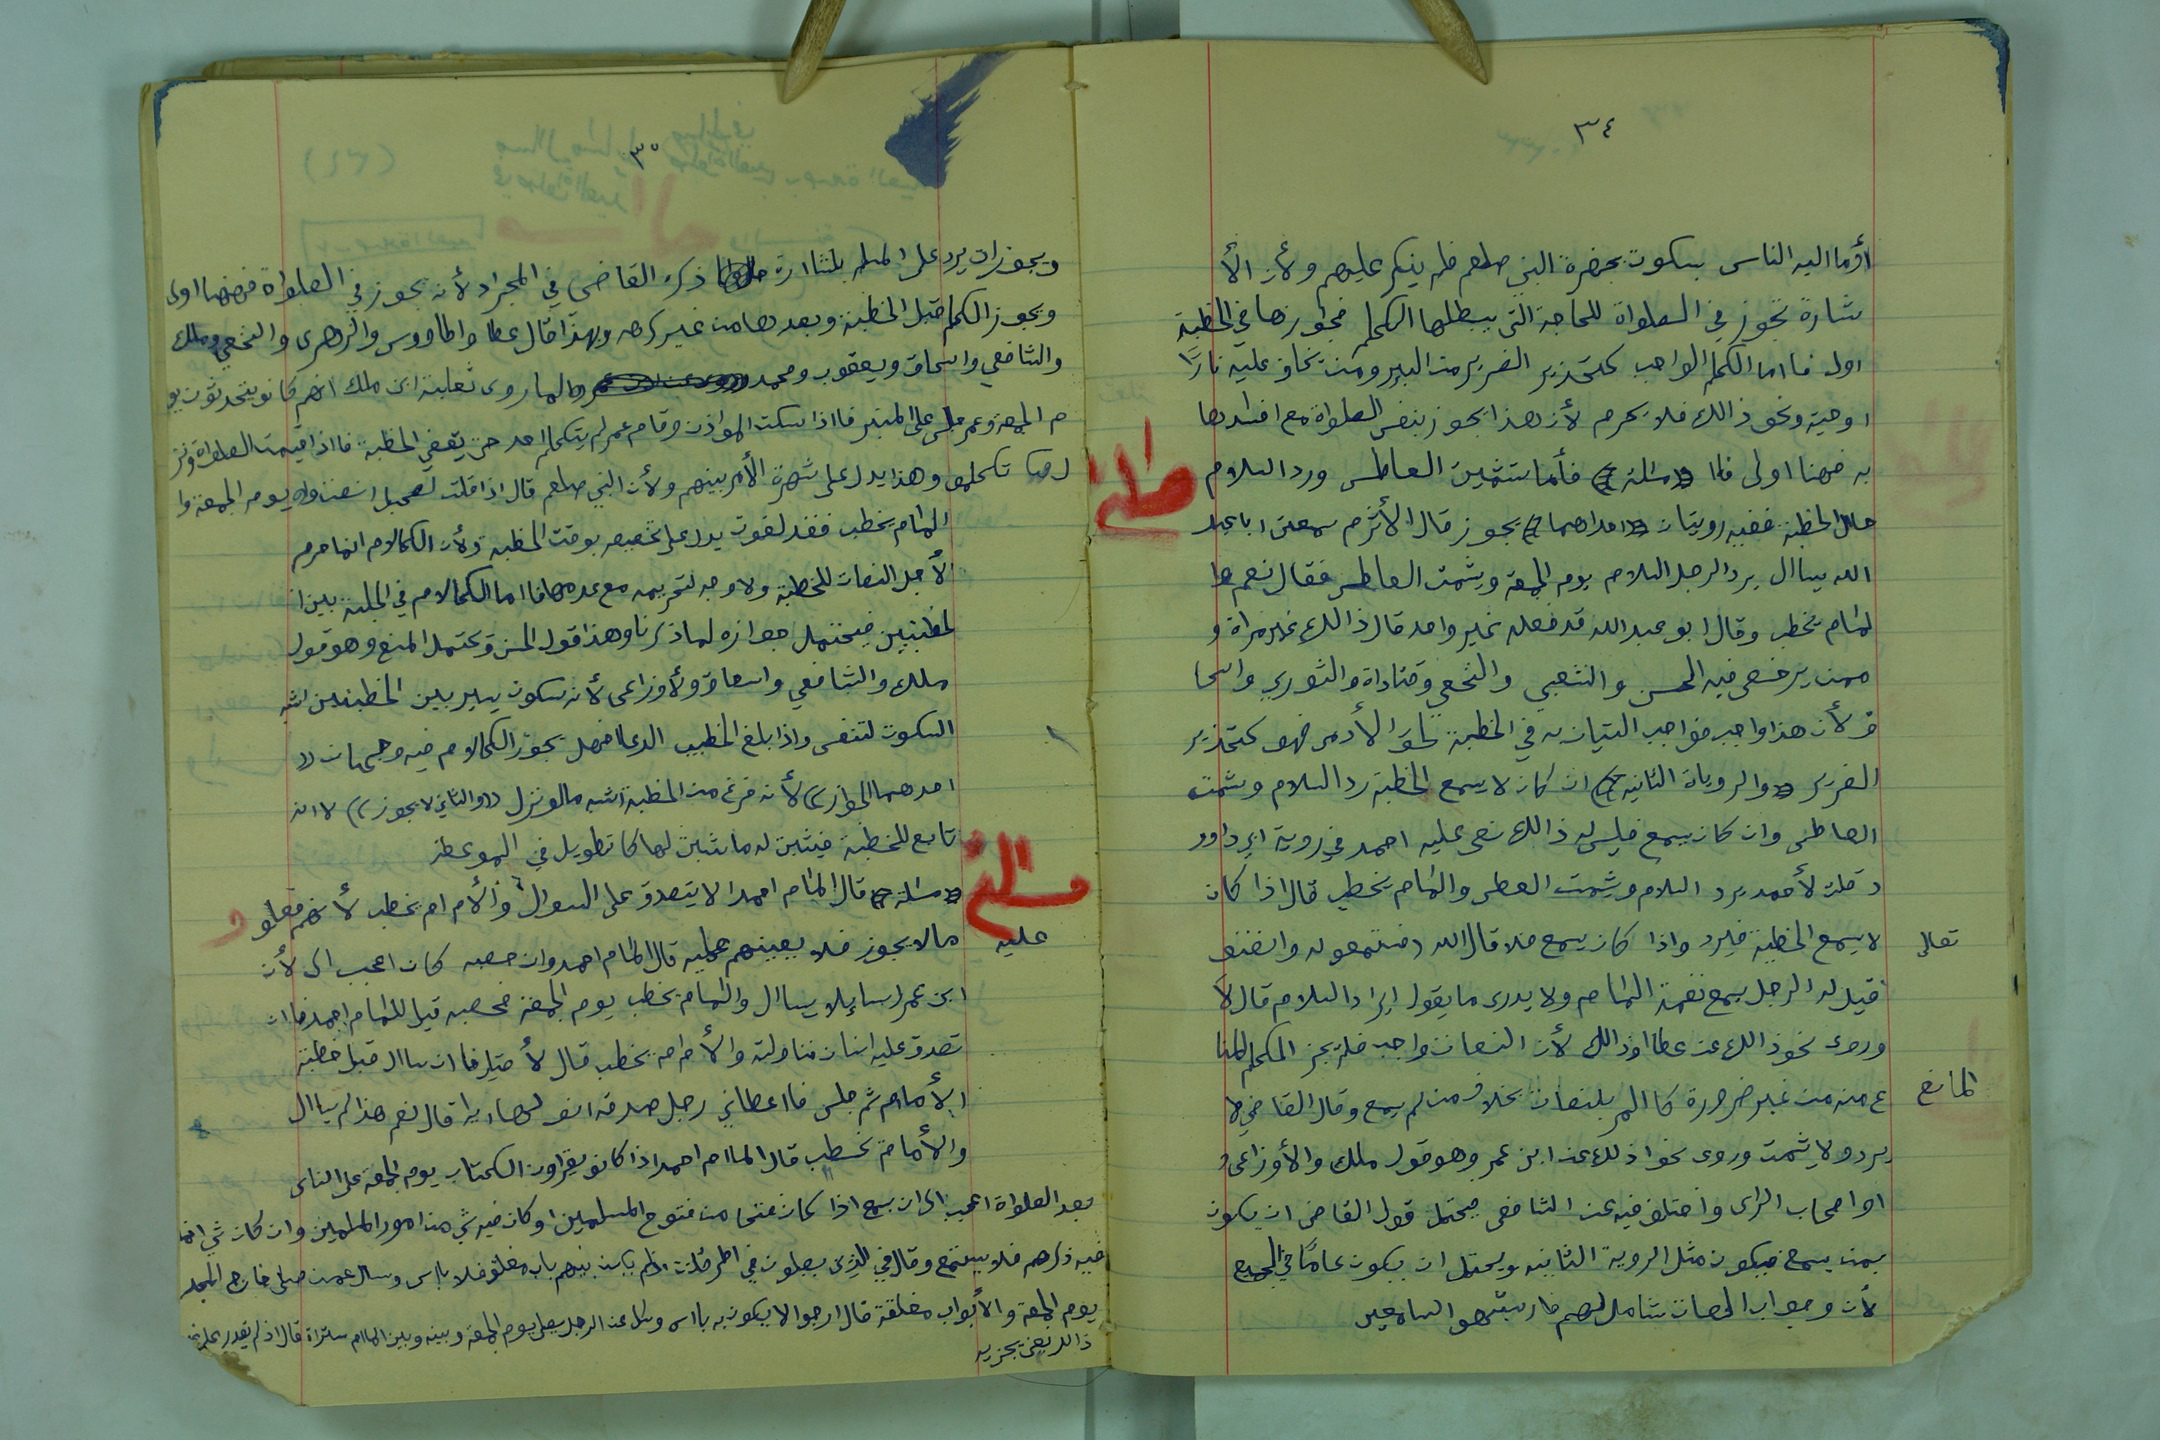 ٣٤
أوما اليه الناس بسكوت بحضرة النبي صلعم فلم ينكر عليهم ولأن الأ
شارة تجوز في الصلواة للحاجة التي يبطلها الكلام فجوازها في الخطبة
اولى فاما الكلام الواجب كتحذير الضرير من البير ومن يخاف عليه نارًا
اوحية ونحو ذالك فلا يحرم لأن هذا يجوز بنفس الصلواة مع افسادها
به فهنا اولى فاا ((مسئلة)) فأما تشميت العاطس ورد السلام
حال الخطبة ففيه رويتان ((احداهما)) يجوز قال الأثرم سمعت ابا عبد
الله يساال يرد الرجل السلام يوم الجمعة ويشمت العاطس فقال نعم وا
لمام يخطب وقال ابو عبد الله قد فعله غير واحد قال ذالك غير مراة و
ممن يرخص فيه الحسن والشعبي والنخعي وقتاداة والثوري واسحا
ق لأن هذا واجب فواجب التيان به في الخطبة كتحذير
الضرير ((والرويات الثانية)) ان كان لا يسمع الخطبة رد السلام وشمت
العاطس وان كان يسمع فليس له ذالك نص عليه احمد في روية ابي داوو
د قلت لأحمد يرد السلام ويشمت العطس والمام يخطب قال اذا كان
لا يسمع الخطبة فيرد واذا كان يسمع فلا قال الله فستمعو له وانصتو
تعالى
قيل له الرجل يسمع نغمة المام ولا يدرى ما يقول ايراد السلام قال لا
وروى نحو ذالك عن عطا وذالك لأن النصات واجب فلم يجز الكلام المنا
ع منه من غير ضرورة كا المر بلنصات بخلاف من لم يسمع وقال القاضي لا
المانع
يرد ولا يشمت وروى نحوا ذلك عن ابن عمر وهو قول ملك والأوزاعي و
اوا صحاب الراى واختلف فيه عن الشافعى يحتمل قول القاضى ان يكون
بمن يسمع فيكون مثل الروية الثانيه ويحتمل ان يكون عامًا في الجميع
لأن وجواب النصات شامل لهم فا ربتهو السامعين
مسئلة
٣٥
ويجوز ان يرد على المسلم بلشاارة ذكره القاضي في المجراد لأنه يجوز في الصلواة فهنها اولى
ويجوز الكلام قبل الخطبة وبعدها من غير كره وبهذا قال عطا والطاووس والزهرى والنخعي وملك
والشافعي واسحاق ويعقوب ومحمد لما روى ثعلبة ابن ملك انهم كانو يتحدثون يو
م الجمعة وعمر جلس على المنبر فاا ذا سكت الموأذن وقام عمر لم يتكلم احد حتى يقضي الخطبة فااذا قيمت الصلواة ونز
ل عمر تكلمو وهذا يدل على شهرة الأمر بينهم ولأن النبي صلعم قال اذا قلت لصحبك انصت يوم الجمعة وا
المام يخطب فقد لغوت يدل على تخصيصه بوقت الخطبة ولأن الكلاام انما حرم
لأجل النصات للخطبة ولا وجه لتحريمه مع عدمها فاما الكلاام في الجلسة بين ا
لخطبتين فيحتمل جوازه لما ذكرنا وهذا قول الحسن ويحتمل المنع وهو قول
ملك والشافعي واسحاق ولأوزاعى لأنه سكوت يسير بين الخطبتين اشبه
السكوت لتنفس واذا بلغ الخطيب الدعا فهل يجوز الكلاام فيه وجهان ((
احدهما الجواز)) لأنه فرغ من الخطبة اشبه مالو نزل ((والثاني لا يجوز)) لاانه
تابع للخطبة فيثبت له ما ثبت لها كا تطويل في الموعظة
((مسئلة)) قال المام احمد لا يتصدق على السوال والأمام يخطب لأنهم فعلو
ما لا يجوز فلا يعينهم عليه قال المام احمد وان حصبه كان اعجب الى لأن
عليه
ابن عمر راا سايلا يساال والمام يخطب يوم الجمعة فحصبه قيل للمام احمد فاان
تصدق عليه انسان فناوله والأمام يخطب قال لا قيل فاان ساال قبل خطبة
الأمام ثم جلس فااعطاني رجل صدقه انولها اياه قال نعم هذا لم يساال
والأمام يخطب قال الماام احمد اذا كانو يقراون الكتاب يوم الجمعة على الناس
بعد الصلواة اعجب الى ان يسمع اذا كان فتحا من فتوح المسلمين او كان فيه شي من امور المسلمين وان كان شي انما
فيه ذكرهم فلا يستمع وقال في الذين يصلون في الطرقات اذلم يكن بينهم باب مغلق فلا باس وسال عمن صلى خارج المسجد
يوم الجمعة والأبواب مغلقة قال ارجوا الا يكون به باس وسال عن الرجل يصلى يوم الجمعة وبينه وبين الماام ستراة قال اذ لم يقدر على غير
ذالك يعني يجزيه
مسالة